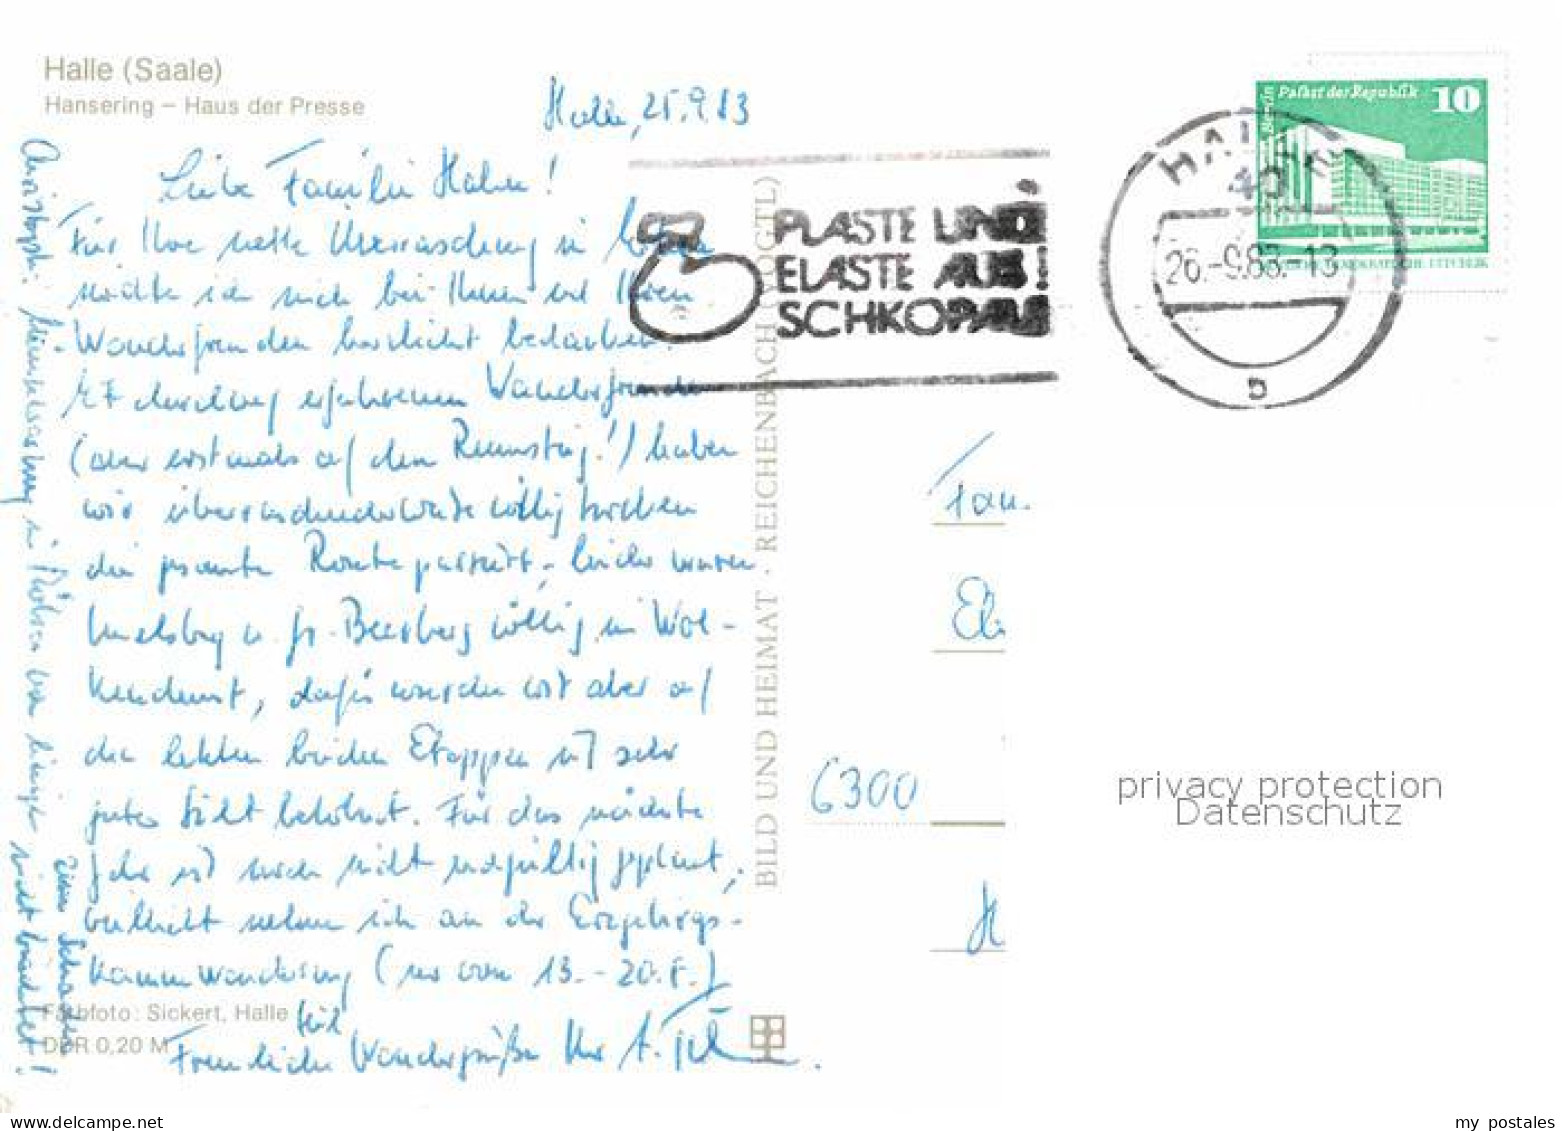 Halle (Saale)
Hansering – Haus der Presse
Halle, 25.9.83
Liebe Familie Hahn!
Für Ihre nette Überraschung in
möchte ich mich bei Ihnen und Ihren
Wanderfreunden herzlichst bedanken.
Als durchweg erfahrenen Wanderfreunde
(aber erstmals auf dem Rennsteig!) haben
wir überraschenderweise völlig trocken
die gesamte Route passiert, leider waren
Inselsberg u. Gr. Beerberg völlig in Wol-
kendunst, dafür wurden wir aber auf
den letzten beiden Etappen mit sehr
guter Sicht belohnt. Für das nächste
Jahr ist noch nicht endgültig geplant,
vielleicht nehme ich an der Erzgebirgs-
kammwanderung (nur vom 13.–20.8.)
teil
Freundliche Wandergrüße Ihr
in
nicht
zum
Farbfoto: Sickert, Halle
DDR 0,20 M
BILD UND HEIMAT · REICHENBACH (VOGTL)
PLASTE UND
ELASTE AUS!
SCHKOPAU
HALLE
40
26.-9.83.-13
b
Berlin Palast der Republik 10
Fam.
6300
privacy protection
Datenschutz
my postales